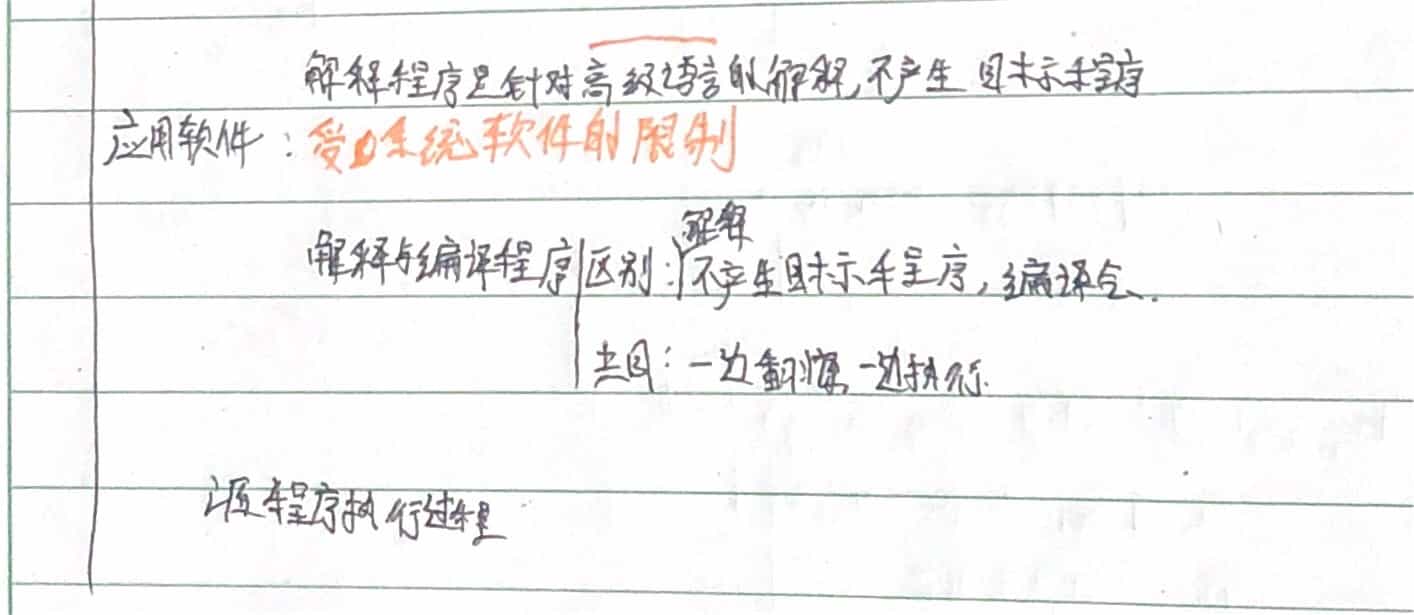 解释程序是针对高级语言的解释,不产生目标程序
应用软件:受系统软件的限制
解释与编译程序 区别: 解释不产生目标程序,编译会.
共同:一边翻译一边执行.
源程序执行过程